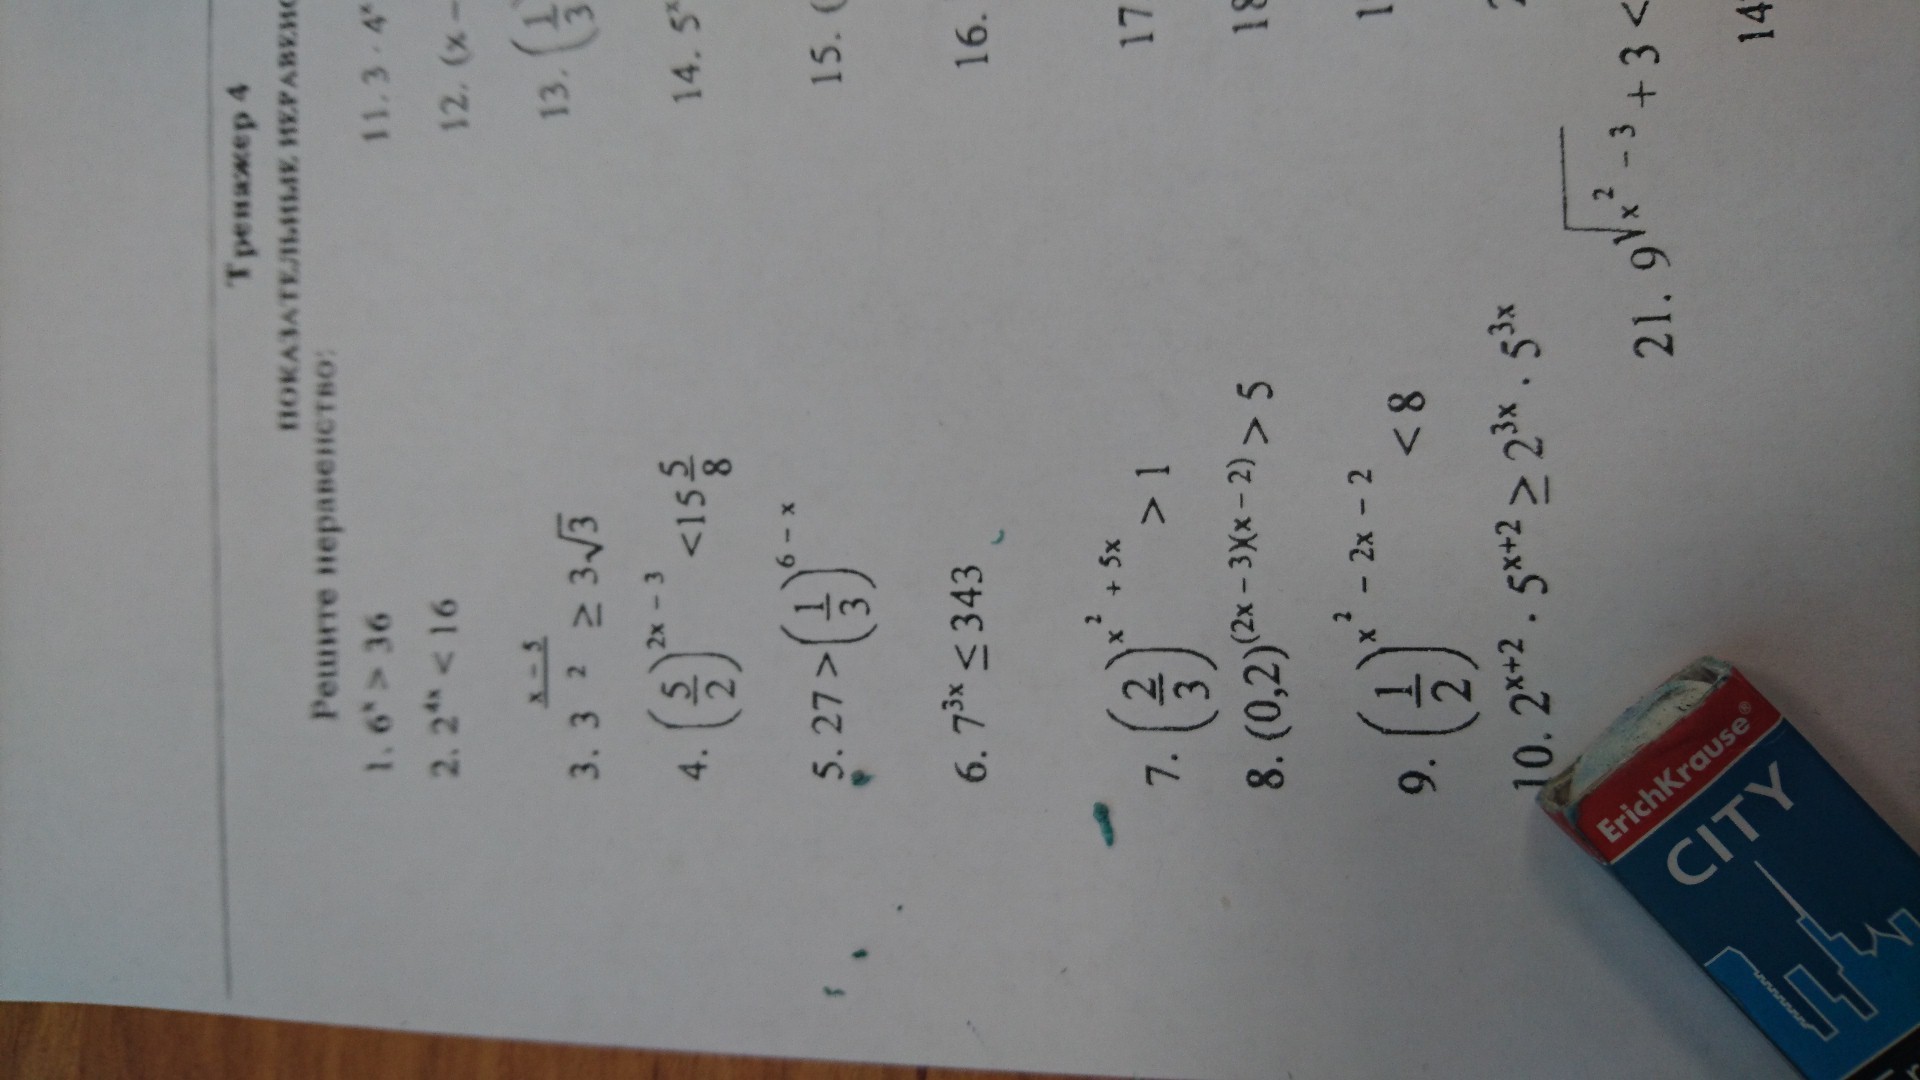 Тренажер 4
ПОКАЗАТЕЛЬНЫЕ НЕРАВЕНС
Решите неравенство:
1. 6ˣ > 36
2. 2⁴ˣ < 16
3. 3^((x − 5)/2) ≥ 3√3
4. (5/2)^(2x − 3) < 15 5/8
5. 27 > (1/3)^(6 − x)
6. 7³ˣ ≤ 343
7. (2/3)^(x² + 5x) > 1
8. (0,2)^((2x − 3)(x − 2)) > 5
9. (1/2)^(x² − 2x − 2) < 8
10. 2ˣ⁺² · 5ˣ⁺² ≥ 2³ˣ · 5³ˣ
11. 3 · 4ˣ
12. (x −
13. (1/3
14. 5ˣ
15. (
16.
17
18
1
2
21. 9^√(x² − 3) + 3 <
14
ErichKrause®
CITY